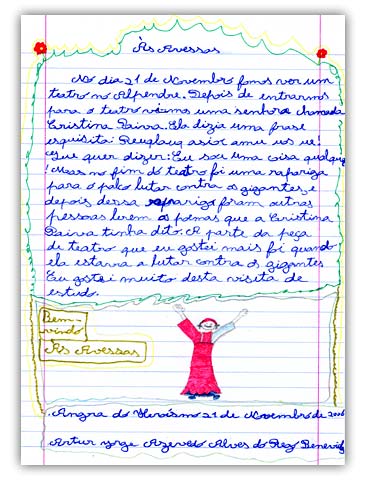 Às Avessas
No dia 21 de Novembro fomos ver um
teatro no Alpendre. Depois de entrarmos
para o teatro vimos uma senhora chamada
Cristina Paiva. Ela dizia uma frase
esquisita: asior amu uos ue!
Que quer dizer: Eu sou uma coisa qualquer
! Mas no fim do teatro foi uma rapariga
para o palco lutar contra os gigantes e
depois dessa rapariga foram outras
pessoas lerem os poemas que a Cristina
Paiva tinha dito. A parte da peça
de teatro que eu gostei mais foi quando
ela estava a lutar contra os gigantes.
Eu gostei muito desta visita de
estudo.
Bem-
vindo
Às Avessas
Angra do Heroísmo 21 de Novembro de 2006
Artur Jorge Azevedo Alves do Rego